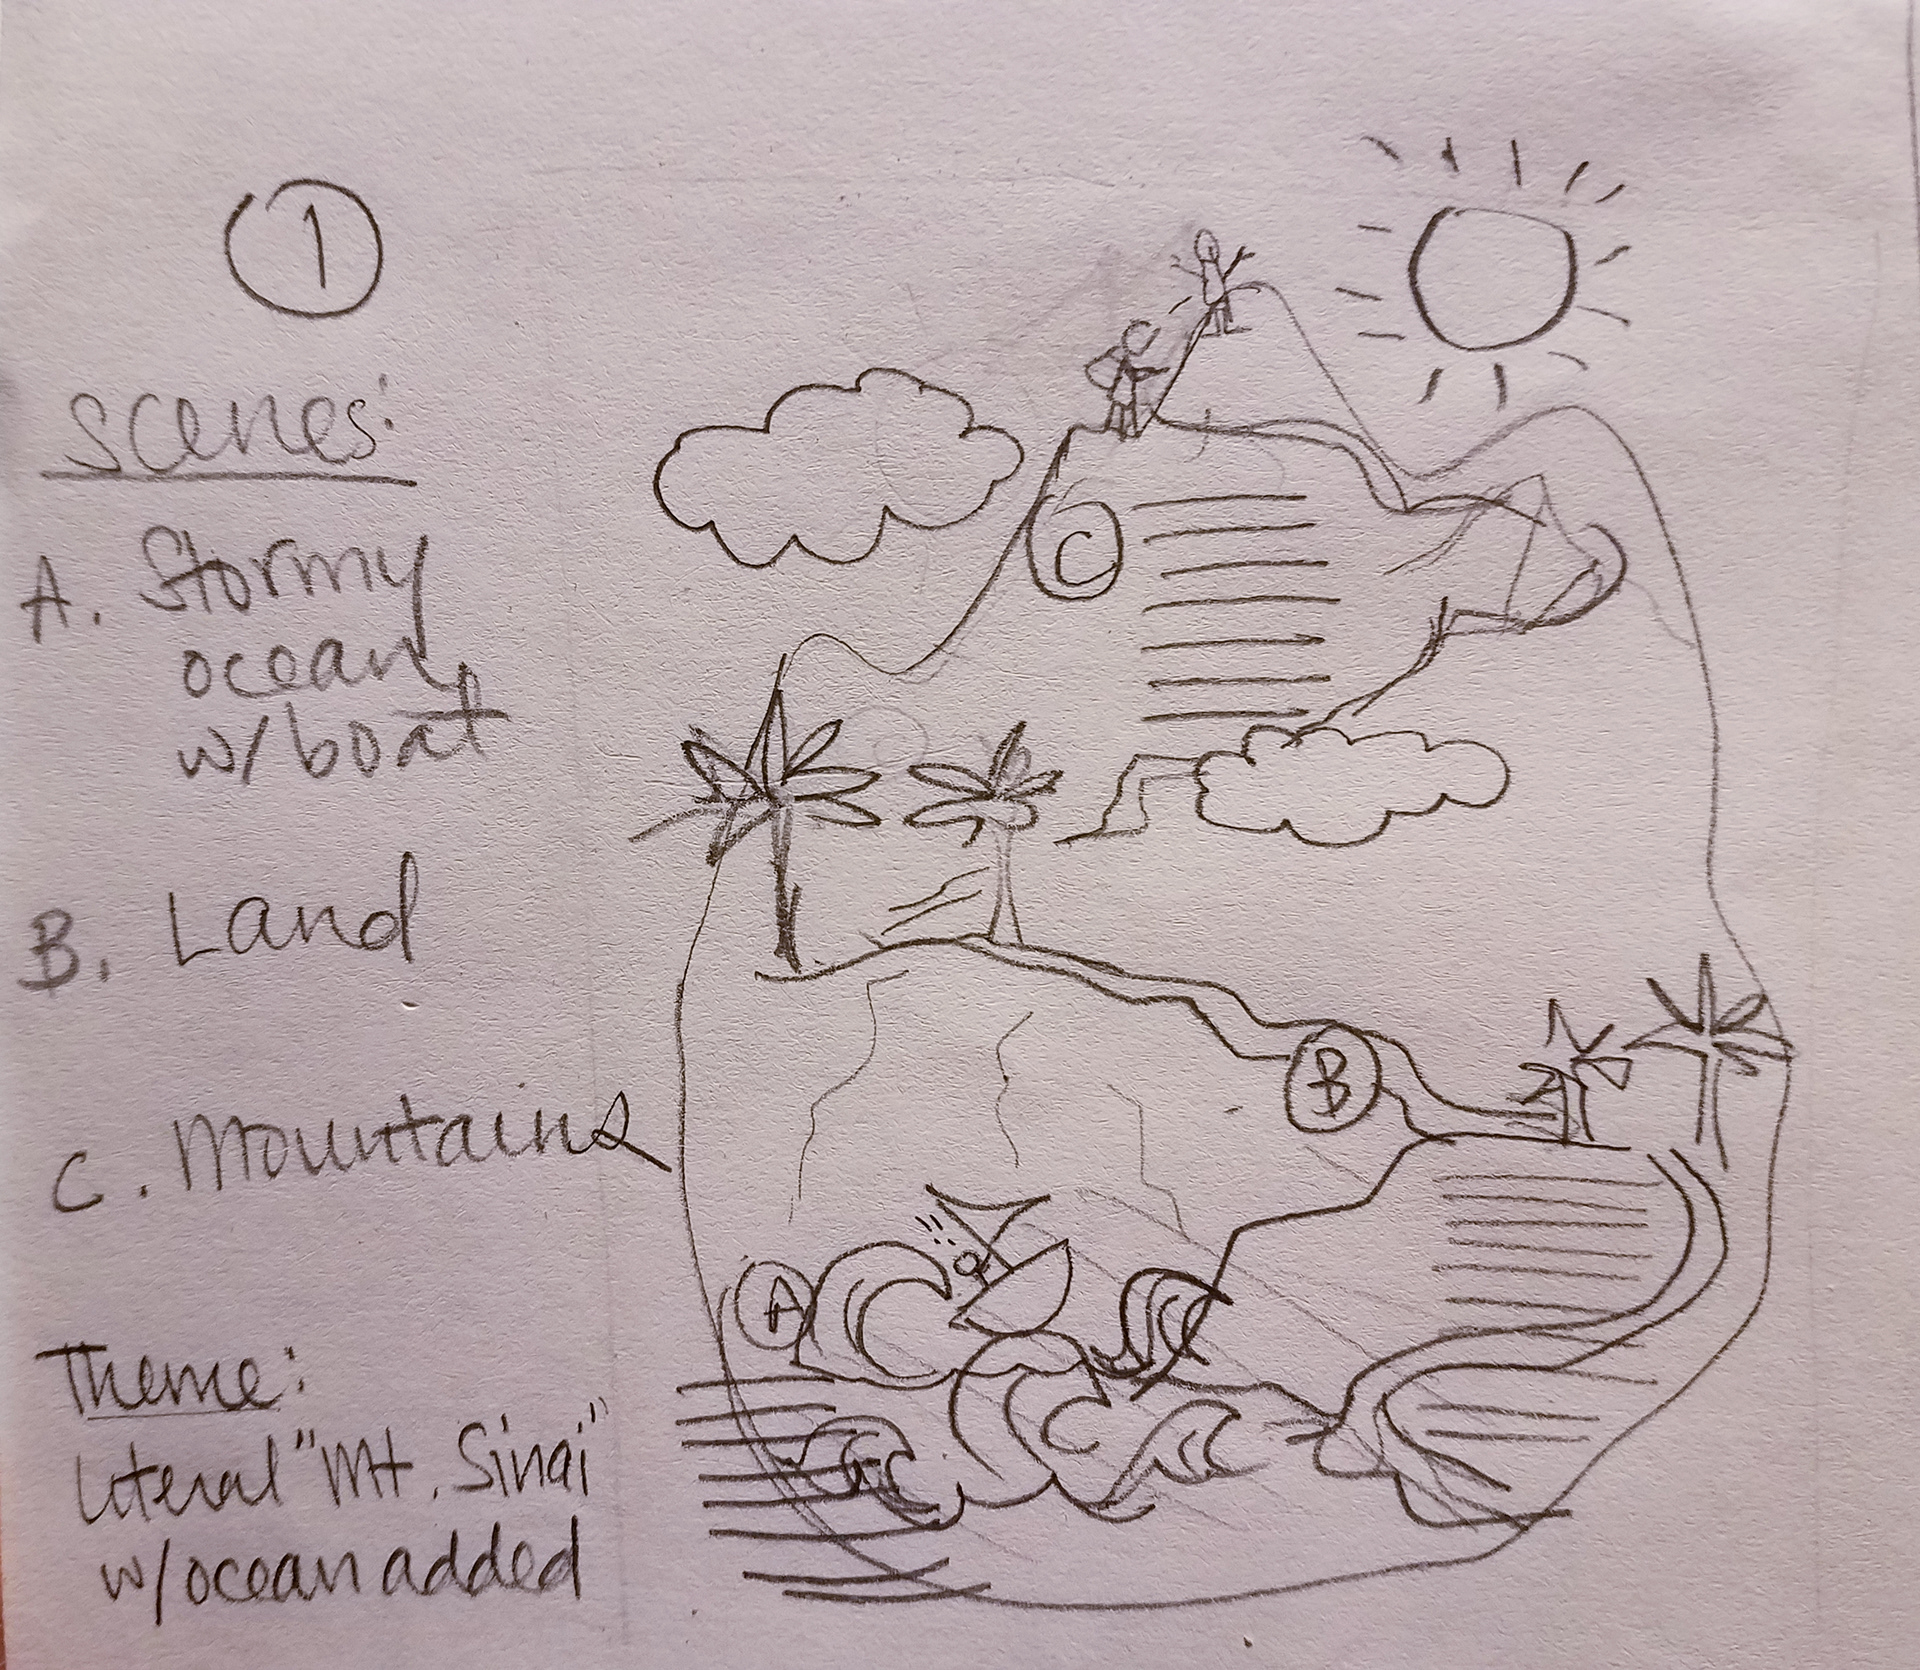 1
Scenes:
A. Stormy
ocean
w/boat
B. Land
C. Mountains
Theme:
Literal "Mt. Sinai"
w/ocean added
C
B
A